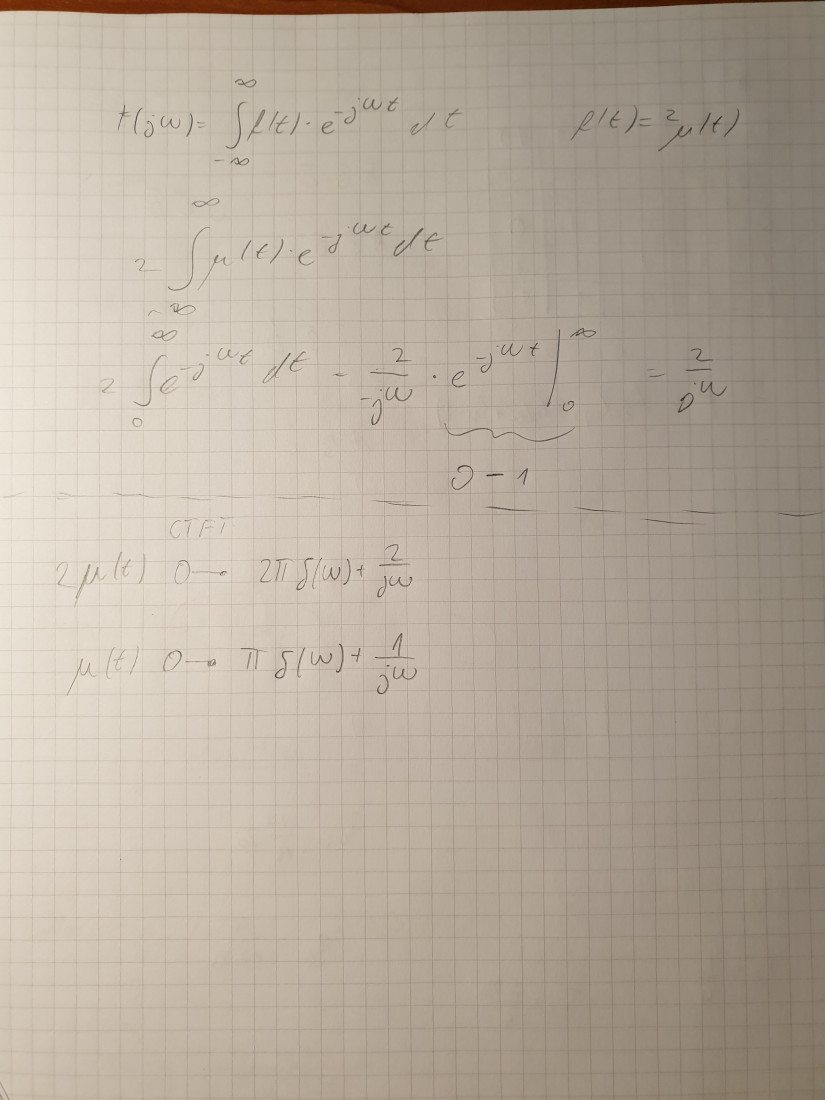 F(jω) = ∫_{-∞}^{∞} f(t) · e^{-jωt} dt    f(t) = 2μ(t)
2 ∫_{-∞}^{∞} μ(t) · e^{-jωt} dt
2 ∫_{0}^{∞} e^{-jωt} dt = 2/(-jω) · e^{-jωt} |_{0}^{∞} = 2/(jω)
0 - 1
CTFT
2μ(t) ○—• 2π δ(ω) + 2/(jω)
μ(t) ○—• π δ(ω) + 1/(jω)